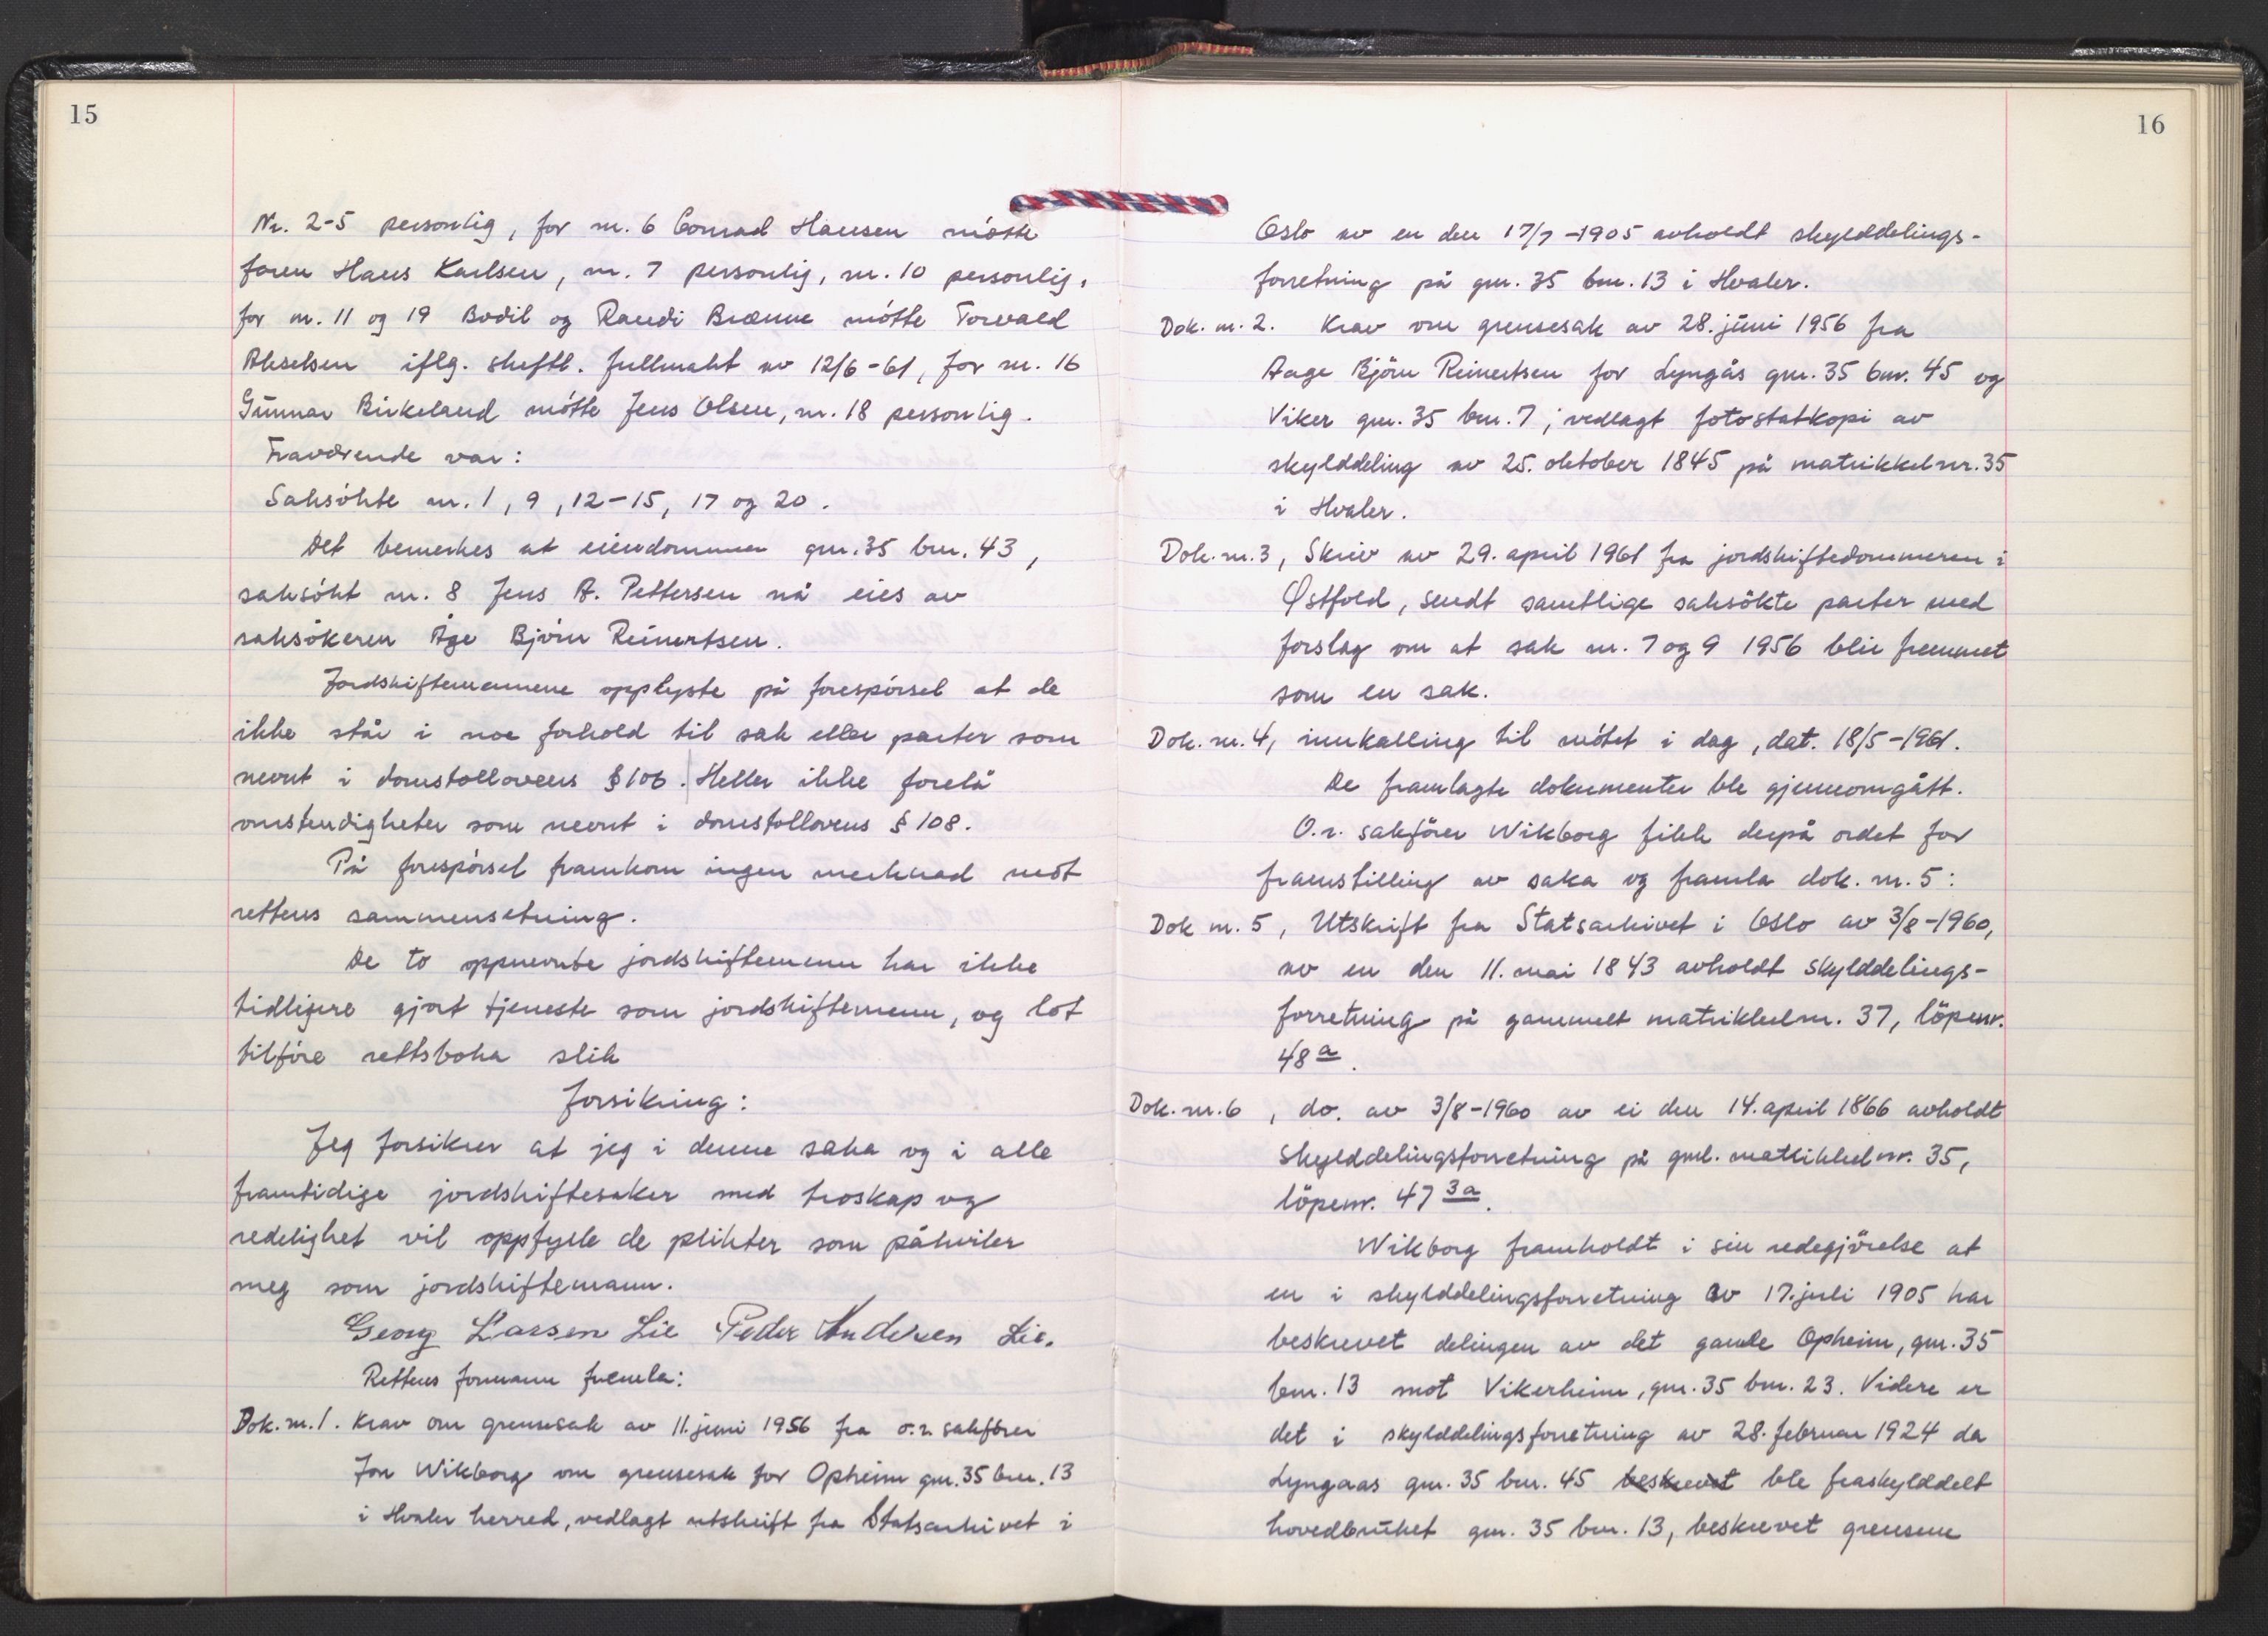 15
Nr. 2-5 personlig, for nr. 6 Conrad Hansen møtte
faren Hans Karlsen, nr. 7 personlig, nr. 10 personlig,
for nr. 11 og 19 Bodil og Randi Brænne møtte Torvald
Akselsen iflg. skriftl. fullmakt av 12/6-61, for nr. 16
Gunnar Birkeland møtte Jens Olsen, nr. 18 personlig.
Fraværende var:
Saksøkte nr. 1, 9, 12-15, 17 og 20.
Det bemerkes at eiendommen gnr. 35 bnr. 43,
saksøkt nr. 8 Jens A. Pettersen nå eies av
saksøkeren Åge Bjørn Reinertsen.
Jordskiftemennene opplyste på forespørsel at de
ikke står i noe forhold til sak eller parter som
nevnt i domstollovens § 106. Heller ikke forelå
omstendigheter som nevnt i domstollovens § 108.
På forespørsel framkom ingen merknad mot
rettens sammensetning.
De to oppnevnte jordskiftemenn har ikke
tidligere gjort tjeneste som jordskiftemenn, og lot
tilføre rettsboka slik
forsikring:
Jeg forsikrer at jeg i denne saka og i alle
framtidige jordskiftesaker med troskap og
redelighet vil oppfylle de plikter som påhviler
meg som jordskiftemann.
Georg Larsen Lie Peder Andersen Lie.
Rettens formann fremla:
Dok. nr. 1. Krav om grensesak av 11. juni 1956 fra o.r. sakfører
Jon Wikborg om grensesak for Opheim gnr. 35 bnr. 13
i Hvaler herred, vedlagt utskrift fra Statsarkivet i
16
Oslo av en den 17/7-1905 avholdt skylddelings-
forretning på gnr. 35 bnr. 13 i Hvaler.
Dok. nr. 2. Krav om grensesak av 28. juni 1956 fra
Aage Bjørn Reinertsen for Lyngås gnr. 35 bnr. 45 og
Viker gnr. 35 bnr. 7; vedlagt fotostatkopi av
skylddeling av 25. oktober 1845 på matrikkelnr. 35
i Hvaler.
Dok. nr. 3, Skriv av 29. april 1961 fra jordskiftedommeren i
Østfold, sendt samtlige saksökte parter med
forslag om at sak nr. 7 og 9 1956 blir fremmet
som en sak.
Dok. nr. 4, innkalling til møtet i dag, dat. 18/5-1961.
De framlagte dokumenter ble gjennomgått.
O.r. sakfører Wikborg fikk derpå ordet for
framstilling av saka og framla dok. nr. 5:
Dok nr. 5, Utskrift fra Statsarkivet i Oslo av 3/8-1960,
av en den 11. mai 1843 avholdt skylddelings-
forretning på gammelt matrikkelnr. 37, löpenr.
48 a.
Dok. nr. 6, do. av 3/8-1960 av ei den 14. april 1866 avholdt
skylddelingsforretning på gml. matrikkelnr. 35,
löpenr. 47 3a.
Wikborg framholdt i sin redegjörelse at
en i skylddelingsforretning av 17. juli 1905 har
beskrevet delingen av det gamle Opheim, gnr. 35
bnr. 13 mot Vikerheim, gnr. 35 bnr. 23. Videre er
det i skylddelingsforretning av 28. februar 1924 da
Lyngaas gnr. 35 bnr. 45 beskrevet ble fraskylddelt
hovedbruket gnr. 35 bnr. 13, beskrevet grensene